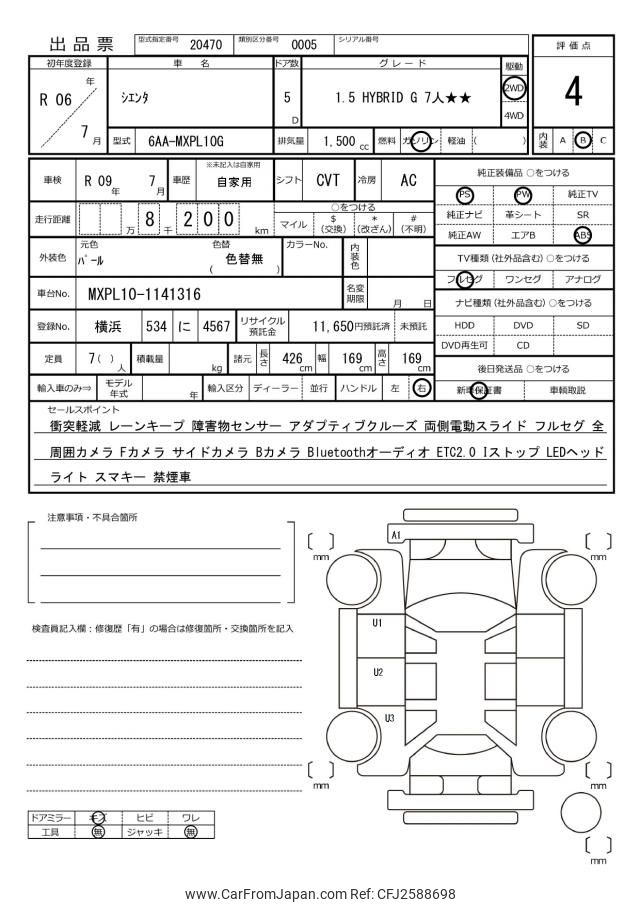 出品票 型式指定番号 20470 類別区分番号 0005 シリアル番号
評価点
初年度登録 車名 ドア数 グレード 駆動
R 06 年 7 月 シエンタ 5 D 1.5 HYBRID G 7人★★ 2WD 4WD
4
型式 6AA-MXPL10G 排気量 1,500 cc 燃料 ガソリン 軽油 ( ) 内装 A B C
車検 R 09 年 7 月 車歴 ※未記入は自家用 自家用 シフト CVT 冷房 AC
純正装備品 ○をつける
PS PW 純正TV
純正ナビ 革シート SR
純正AW エアB ABS
走行距離 万 8 千 2 0 0 km
○をつける
マイル $(交換) *(改ざん) #(不明)
外装色 元色 パール 色替 ( 色替無 ) カラーNo. 内装色
TV種類(社外品含む) ○をつける
フルセグ ワンセグ アナログ
車台No. MXPL10-1141316 名変期限 月 日
ナビ種類(社外品含む) ○をつける
HDD DVD SD
DVD再生可 CD
登録No. 横浜 534 に 4567 リサイクル預託金 11,650円預託済 未預託
定員 7( ) 人 積載量 kg 諸元 長さ 426 cm 幅 169 cm 高さ 169 cm
後日発送品 ○をつける
新車保証書 車輌取説
輸入車のみ⇒ モデル年式 年 輸入区分 ディーラー 並行 ハンドル 左 右
セールスポイント
衝突軽減 レーンキープ 障害物センサー アダプティブクルーズ 両側電動スライド フルセグ 全
周囲カメラ Fカメラ サイドカメラ Bカメラ Bluetoothオーディオ ETC2.0 Iストップ LEDヘッド
ライト スマキー 禁煙車
注意事項・不具合箇所
検査員記入欄：修復歴「有」の場合は修復箇所・交換箇所を記入
A1
U1
U2
U3
mm
mm
mm
mm
mm
ドアミラー キズ ヒビ ワレ
工具 無 ジャッキ 無
www.CarFromJapan.com Ref: CFJ2588698